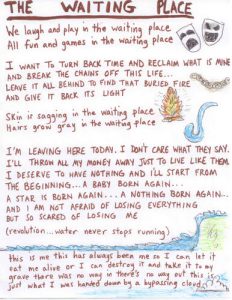 THE WAITING PLACE
We laugh and play in the waiting place
All fun and games in the waiting place
I WANT TO TURN BACK TIME AND RECLAIM WHAT IS MINE
AND BREAK THE CHAINS OFF THIS LIFE...
LEAVE IT ALL BEHIND TO FIND THAT BURIED FIRE
AND GIVE IT BACK ITS LIGHT
Skin is sagging in the waiting place
Hairs grow gray in the waiting place
I'M LEAVING HERE TODAY. I DON'T CARE WHAT THEY SAY.
I'LL THROW ALL MY MONEY AWAY JUST TO LIVE LIKE THEM
I DESERVE TO HAVE NOTHING AND I'LL START FROM
THE BEGINNING... A BABY BORN AGAIN...
A STAR IS BORN AGAIN.... A NOTHING BORN AGAIN...
AND I AM NOT AFRAID OF LOSING EVERYTHING
BUT SO SCARED OF LOSING ME
(revolution...water never stops running)
This is me this has always been me so I can let it
eat me alive or I can destroy it and take it to my
grave there was no way in there's no way out this is
just what I was handed down by a bypassing cloud